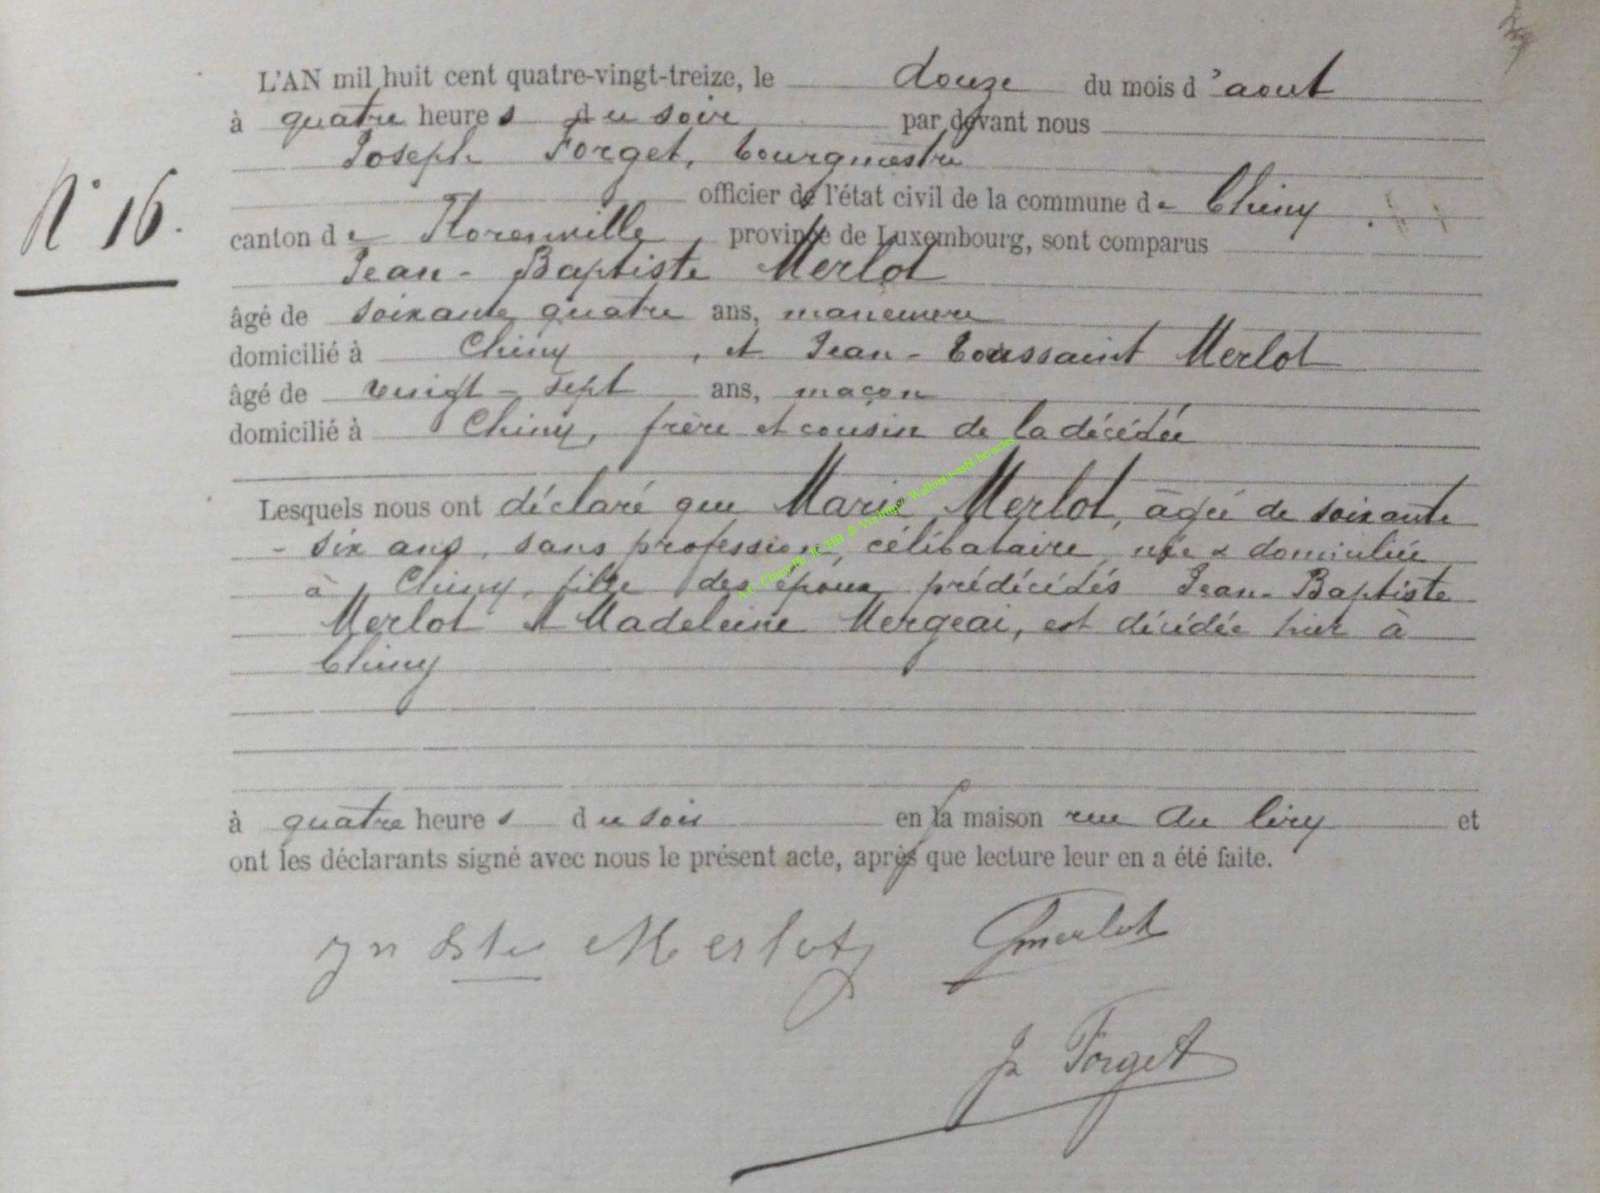 L'AN mil huit cent quatre-vingt-treize, le douze du mois d'aout
à quatre heures du soir par devant nous
Joseph Forget, bourgmestre
officier de l'état civil de la commune de Chiny
N° 16.
canton de Florenville, province de Luxembourg, sont comparus
Jean-Baptiste Merlot
âgé de soixante quatre ans, manœuvre
domicilié à Chiny, et Jean-Toussaint Merlot
âgé de vingt-sept ans, maçon
domicilié à Chiny, frère et cousin de la décédée
Lesquels nous ont déclaré que Marie Merlot, âgée de soixante
-six ans, sans profession, célibataire, née & domiciliée
à Chiny, fille des époux prédécédés Jean-Baptiste
Merlot et Madeleine Mergeai, est décédée hier à
Chiny
à quatre heures du soir en la maison rue du et
ont les déclarants signé avec nous le présent acte, après que lecture leur en a été faite.
Jn Bte Merlot Jmerlot
Js Forget